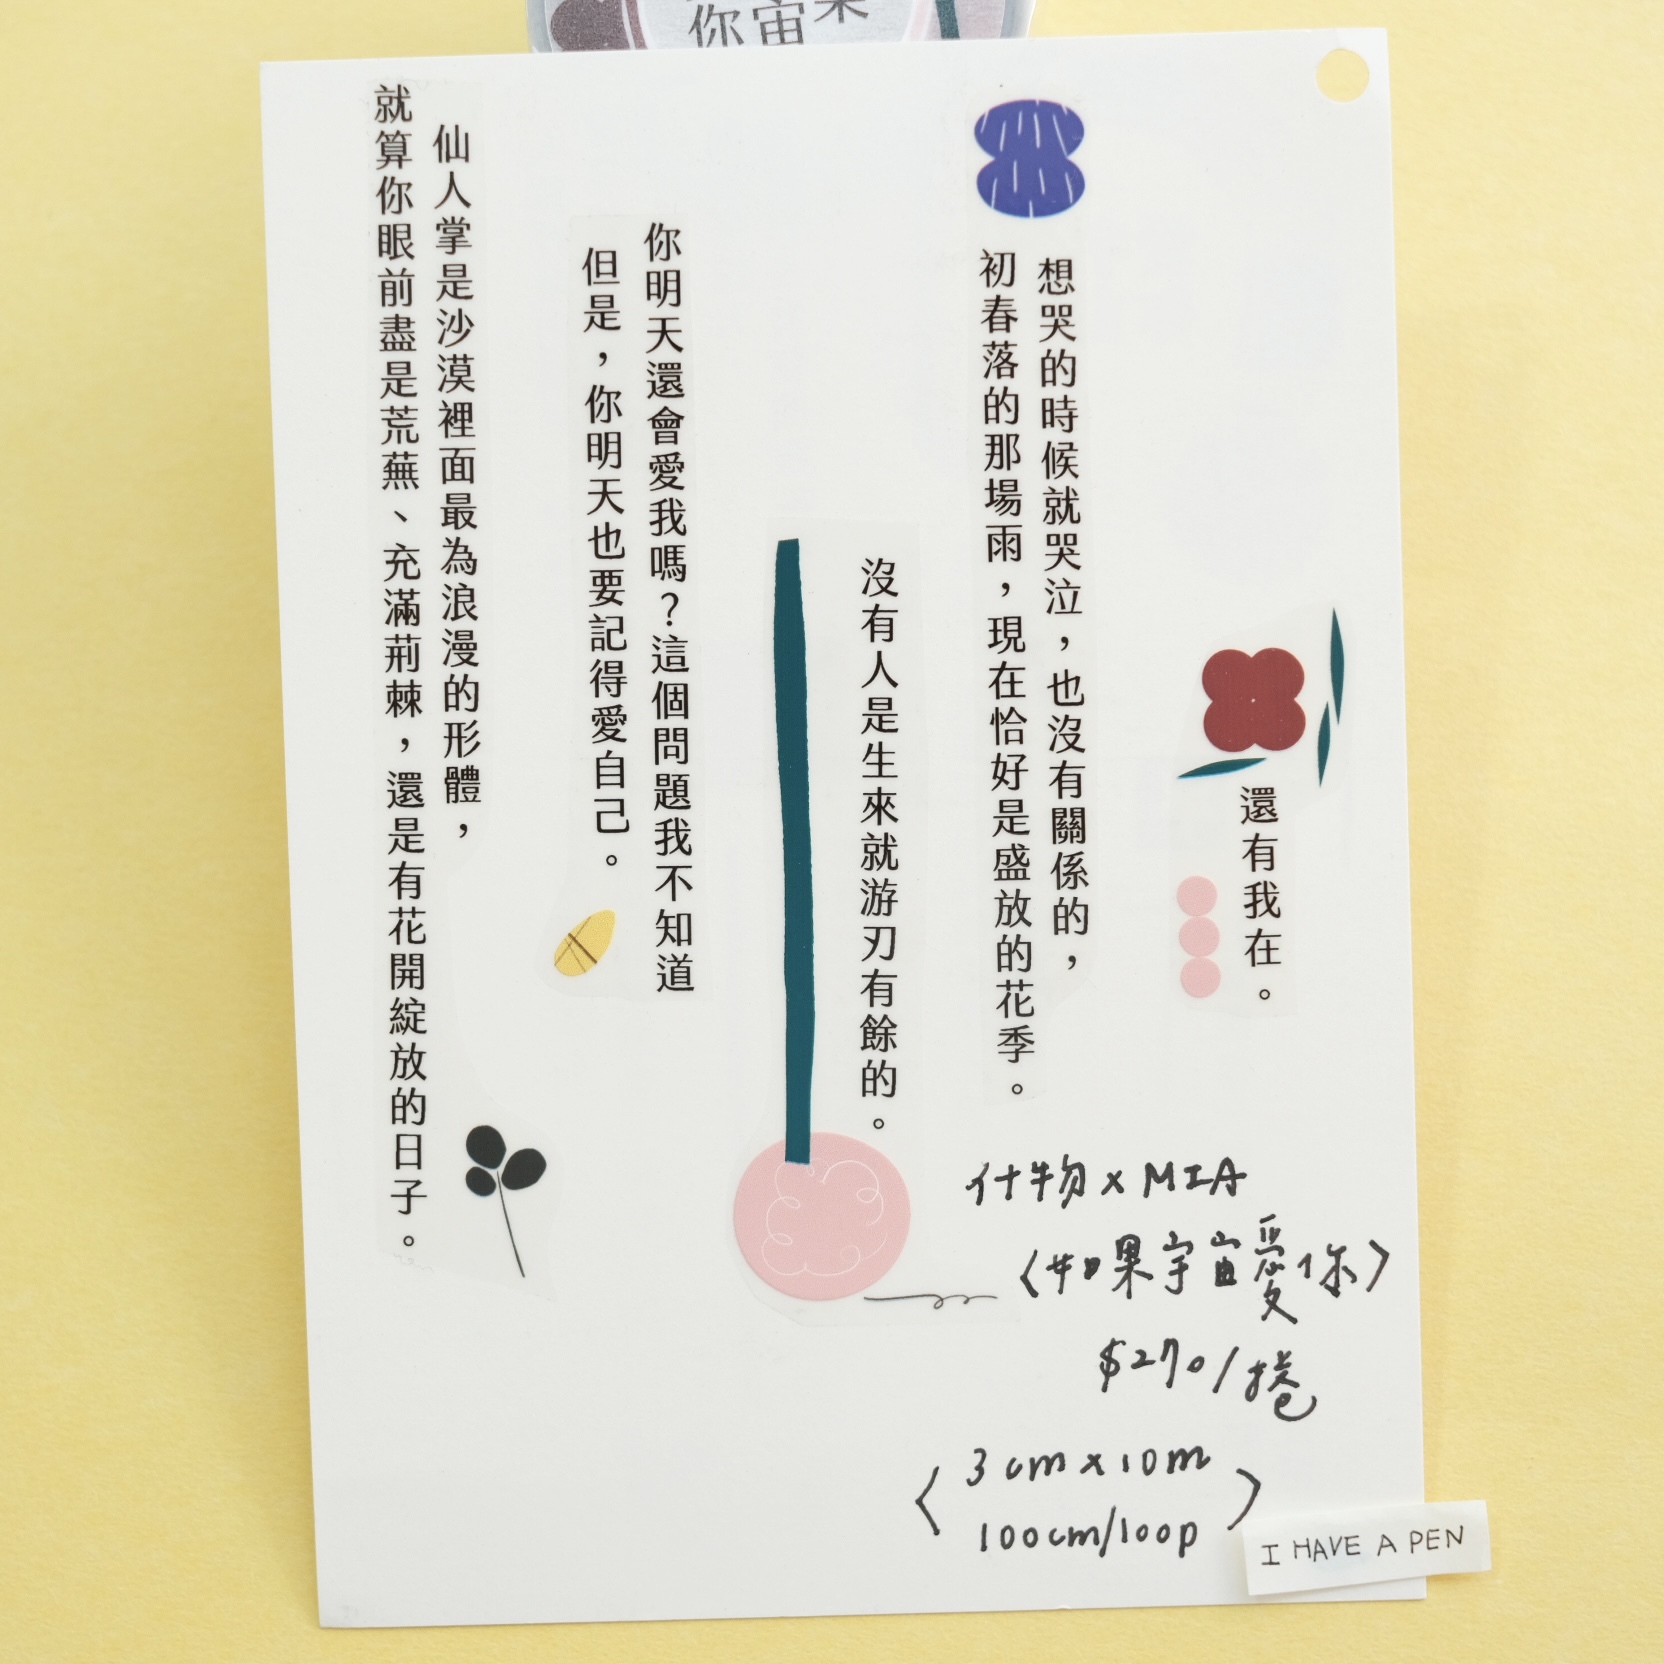 你宙果
還有我在。
想哭的時候就哭泣，也沒有關係的，
初春落的那場雨，現在恰好是盛放的花季。
沒有人是生來就游刃有餘的。
你明天還會愛我嗎？這個問題我不知道
但是，你明天也要記得愛自己。
仙人掌是沙漠裡面最為浪漫的形體，
就算你眼前盡是荒蕪、充滿荊棘，還是有花開綻放的日子。
什物 x MIA
〈如果宇宙愛你〉
$270/捲
〈3cm x 10m
100cm/loop〉
I HAVE A PEN